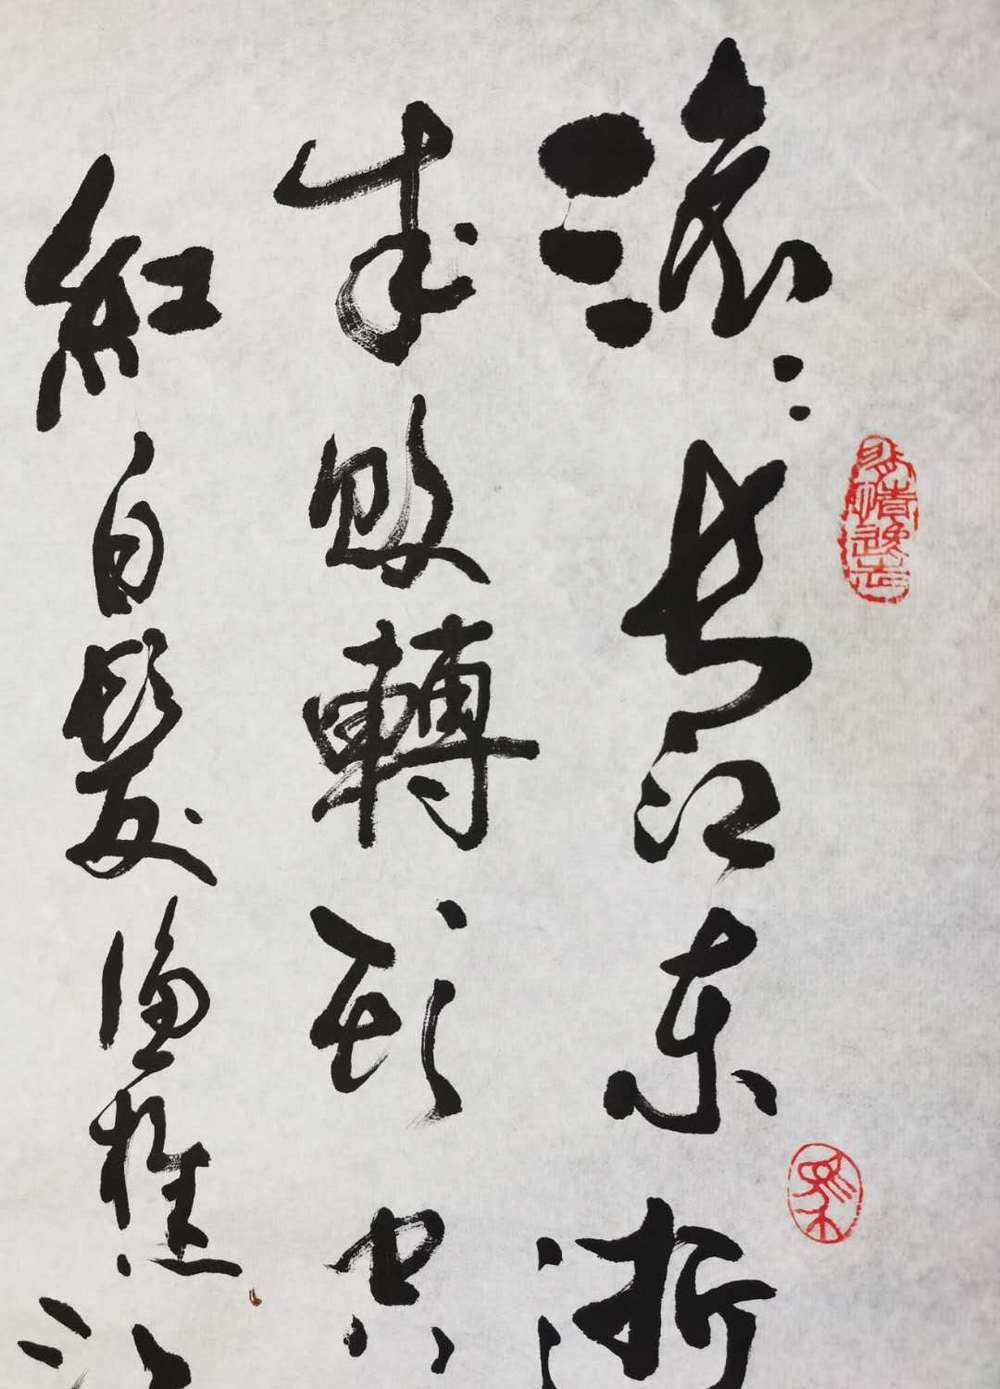 滚〻长江东逝
成败轉头空
红白髮渔樵江